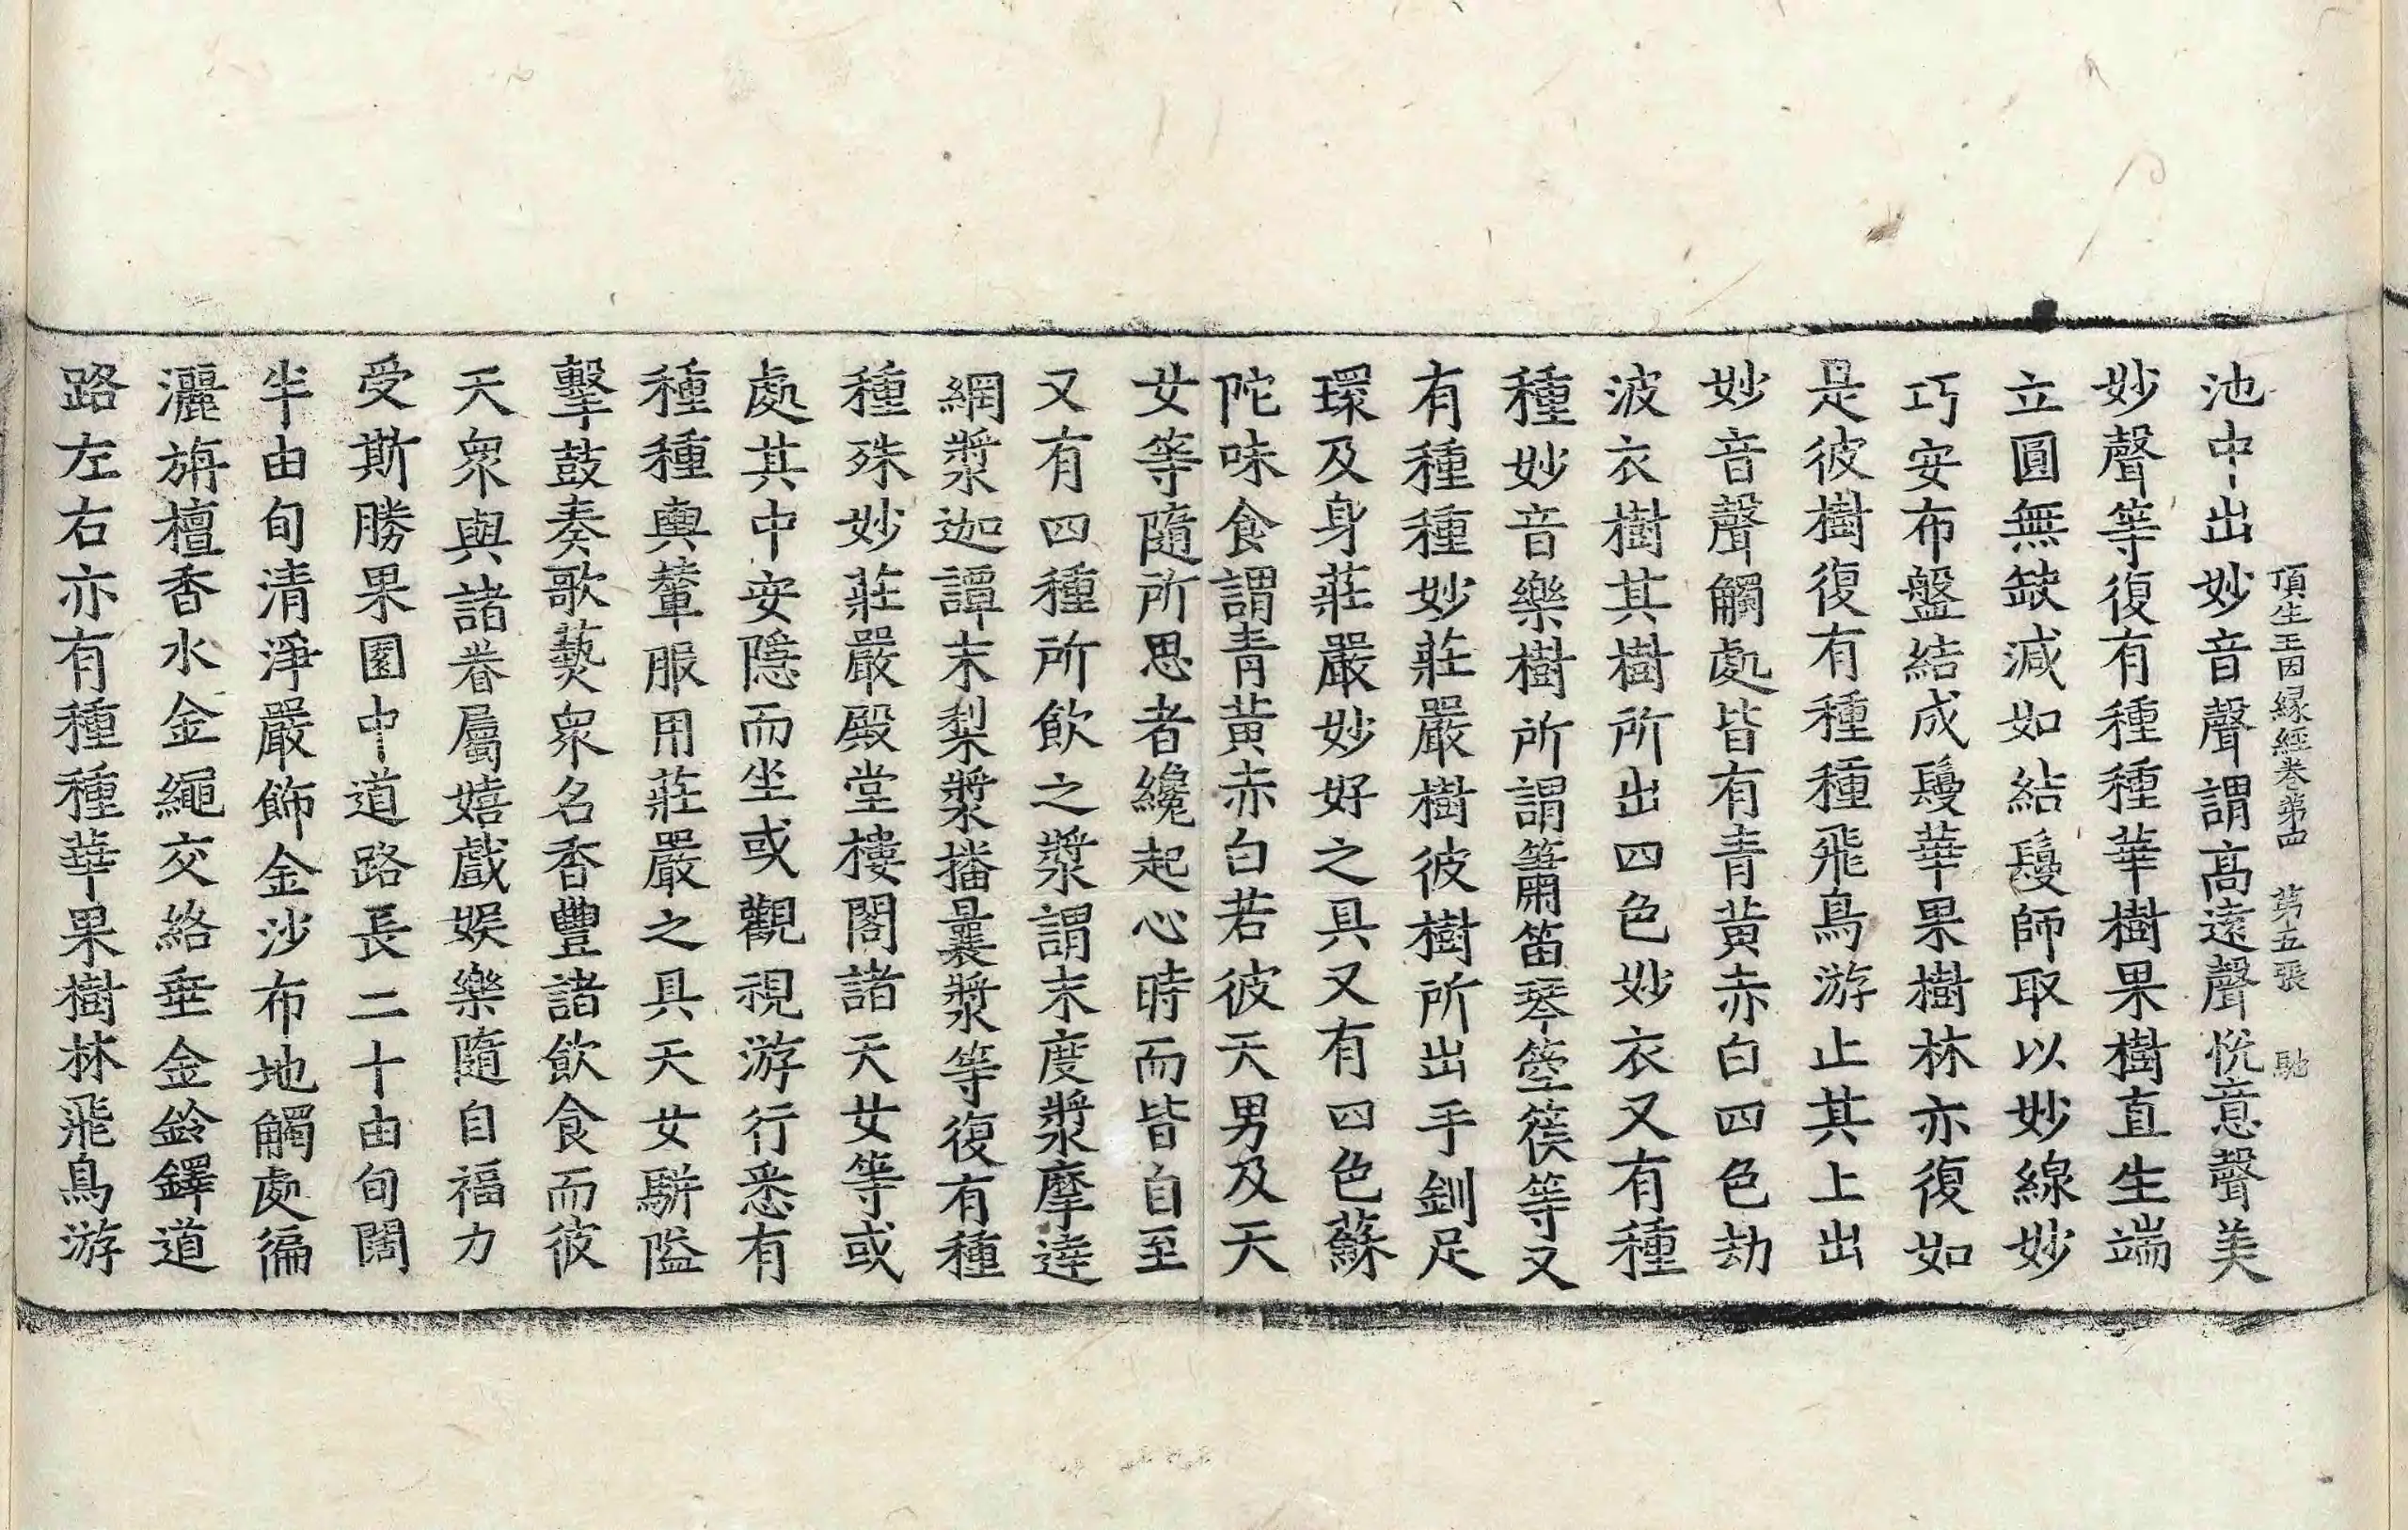 頂生王因緣經卷第四　第五張　馳
池中出妙音聲謂高遠聲悅意聲美
妙聲等復有種種華樹果樹直生端
立圓無缺減如結鬘師取以妙線妙
巧安布盤結成鬘華果樹林亦復如
是彼樹復有種種飛鳥游止其上出
妙音聲觸處皆有青黃赤白四色劫
波衣樹其樹所出四色妙衣又有種
種妙音樂樹所謂簫笛琴箜篌等又
有種種妙莊嚴樹彼樹所出手釧足
環及身莊嚴妙好之具又有四色蘇
陀味食謂青黃赤白若彼天男及天
女等隨所思者纔起心時而皆自至
又有四種所飲之漿謂末度漿摩達
網漿迦譚末梨漿播曩漿等復有種
種殊妙莊嚴殿堂樓閣諸天女等或
處其中安隱而坐或觀視游行悉有
種種輿輦服用莊嚴之具天女駢隘
擊鼓奏歌藝衆名香豐諸飲食而彼
天衆與諸眷屬嬉戲娛樂隨自福力
受斯勝果園中道路長二十由旬闊
半由旬清淨嚴飾金沙布地觸處徧
灑旃檀香水金繩交絡垂金鈴鐸道
路左右亦有種種華果樹林飛鳥游